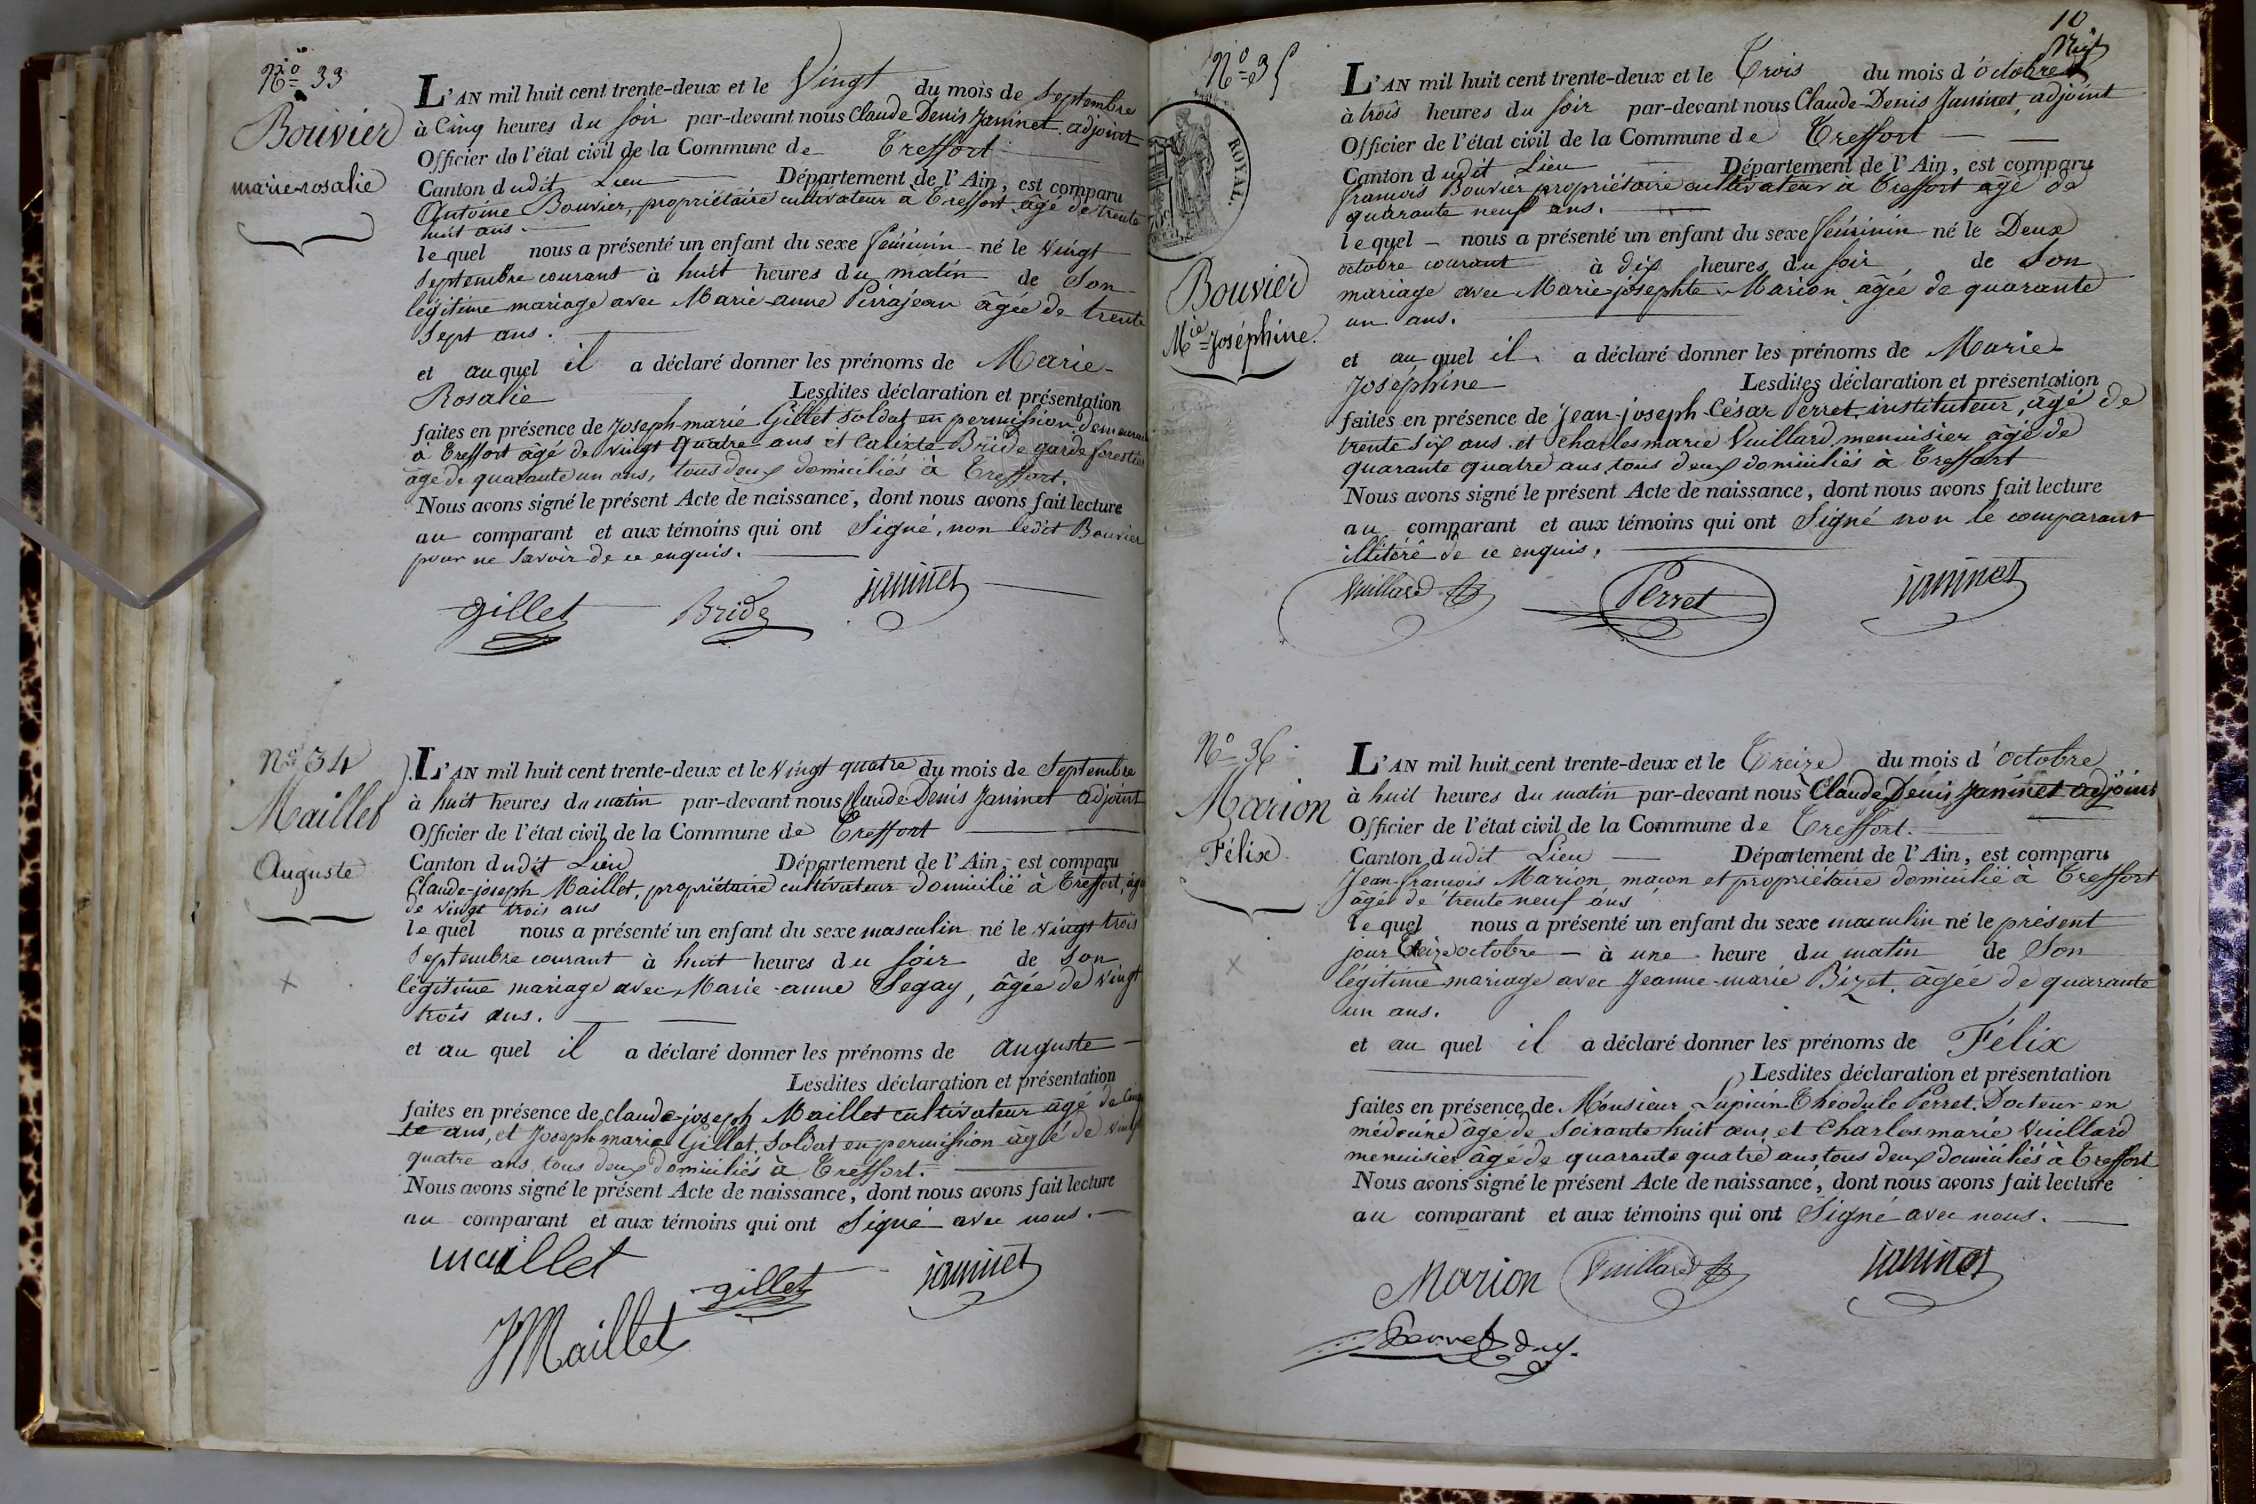 N.o 33
Bouvier
marie-rosalie
L'AN mil huit cent trente-deux et le Vingt du mois de Septembre
à Cinq heures du soir par-devant nous Claude Denis Janinet adjoint
Officier de l'état civil de la Commune de Treffort
Canton dudit Lieu Département de l'Ain, est comparu
Antoine Bouvier, propriétaire cultivateur à Treffort âgé de trente
huit ans.
lequel nous a présenté un enfant du sexe féminin né le vingt
septembre courant à huit heures du matin de Son
légitime mariage avec Marie-anne Pirrajean âgée de trente
Sept ans.
et auquel il a déclaré donner les prénoms de Marie-
Rosalie Lesdites déclaration et présentation
faites en présence de Joseph-marie Gillet soldat en permission
à Treffort âgé de vingt quatre ans et Calixte Bride garde forestier
âgé de quarante un ans, tous deux domiciliés à Treffort.
Nous avons signé le présent Acte de naissance, dont nous avons fait lecture
au comparant et aux témoins qui ont Signé, non ledit Bouvier
pour ne savoir de ce enquis.
gillet Bride janinet
No 34
Maillet
Auguste
L'AN mil huit cent trente-deux et le vingt quatre du mois de Septembre
à huit heures du matin par-devant nous Claude Denis Janinet adjoint
Officier de l'état civil de la Commune de Treffort
Canton dudit Lieu Département de l'Ain, est comparu
Claude-joseph Maillet, propriétaire cultivateur domicilié à Treffort, âgé
de vingt trois ans
lequel nous a présenté un enfant du sexe masculin né le vingt trois
Septembre courant à huit heures du soir de Son
légitime mariage avec Marie-anne Segay, âgée de vingt
trois ans.
et au quel il a déclaré donner les prénoms de auguste
Lesdites déclaration et présentation
faites en présence de claude-joseph Maillet cultivateur âgé de
te ans, et Joseph marie Gillet, Soldat en permission âgé de vingt
quatre ans, tous deux domiciliés à Treffort.
Nous avons signé le présent Acte de naissance, dont nous avons fait lecture
au comparant et aux témoins qui ont Signé avec nous.
maillet gillet janinet
JMaillet
10
N.o 35
ROYAL.
Bouvier
Mie Joséphine.
L'AN mil huit cent trente-deux et le Trois du mois d'octobre
à trois heures du soir par-devant nous Claude-Denis Janinet, adjoint
Officier de l'état civil de la Commune de Treffort
Canton dudit Lieu Département de l'Ain, est comparu
francois Bouvier propriétaire cultivateur à Treffort âgé de
quarante neuf ans.
lequel nous a présenté un enfant du sexe féminin né le Deux
octobre courant à dix heures du soir de Son
mariage avec Marie-josephte Marion âgée de quarante
un ans.
et au quel il a déclaré donner les prénoms de Marie-
Joséphine Lesdites déclaration et présentation
faites en présence de Jean-joseph-César Perret, instituteur, âgé de
trente six ans et charles marie Vuillard, menuisier âgé de
quarante quatre ans, tous deux domiciliés à Treffort
Nous avons signé le présent Acte de naissance, dont nous avons fait lecture
au comparant et aux témoins qui ont Signé non le comparant
illitéré de ce enquis.
Vuillard Perret janinet
No 36
Marion
Félix
L'AN mil huit cent trente-deux et le Treize du mois d'octobre
à huit heures du matin par-devant nous Claude Denis Janinet adjoint
Officier de l'état civil de la Commune de Treffort.
Canton dudit Lieu Département de l'Ain, est comparu
Jean-françois Marion, maçon et propriétaire domicilié à Treffort
âgé de trente neuf ans
lequel nous a présenté un enfant du sexe masculin né le présent
jour treize octobre à une heure du matin de Son
légitime mariage avec Jeanne-marie Bizet, âgée de quarante
un ans.
et au quel il a déclaré donner les prénoms de Félix
Lesdites déclaration et présentation
faites en présence de Monsieur Lupicin Théodule Perret, Docteur en
médecine âgé de soixante huit ans et Charles marie Vuillard
menuisier âgé de quarante quatre ans, tous deux domiciliés à Treffort
Nous avons signé le présent Acte de naissance, dont nous avons fait lecture
au comparant et aux témoins qui ont Signé avec nous.
Marion Vuillard janinet
Perret